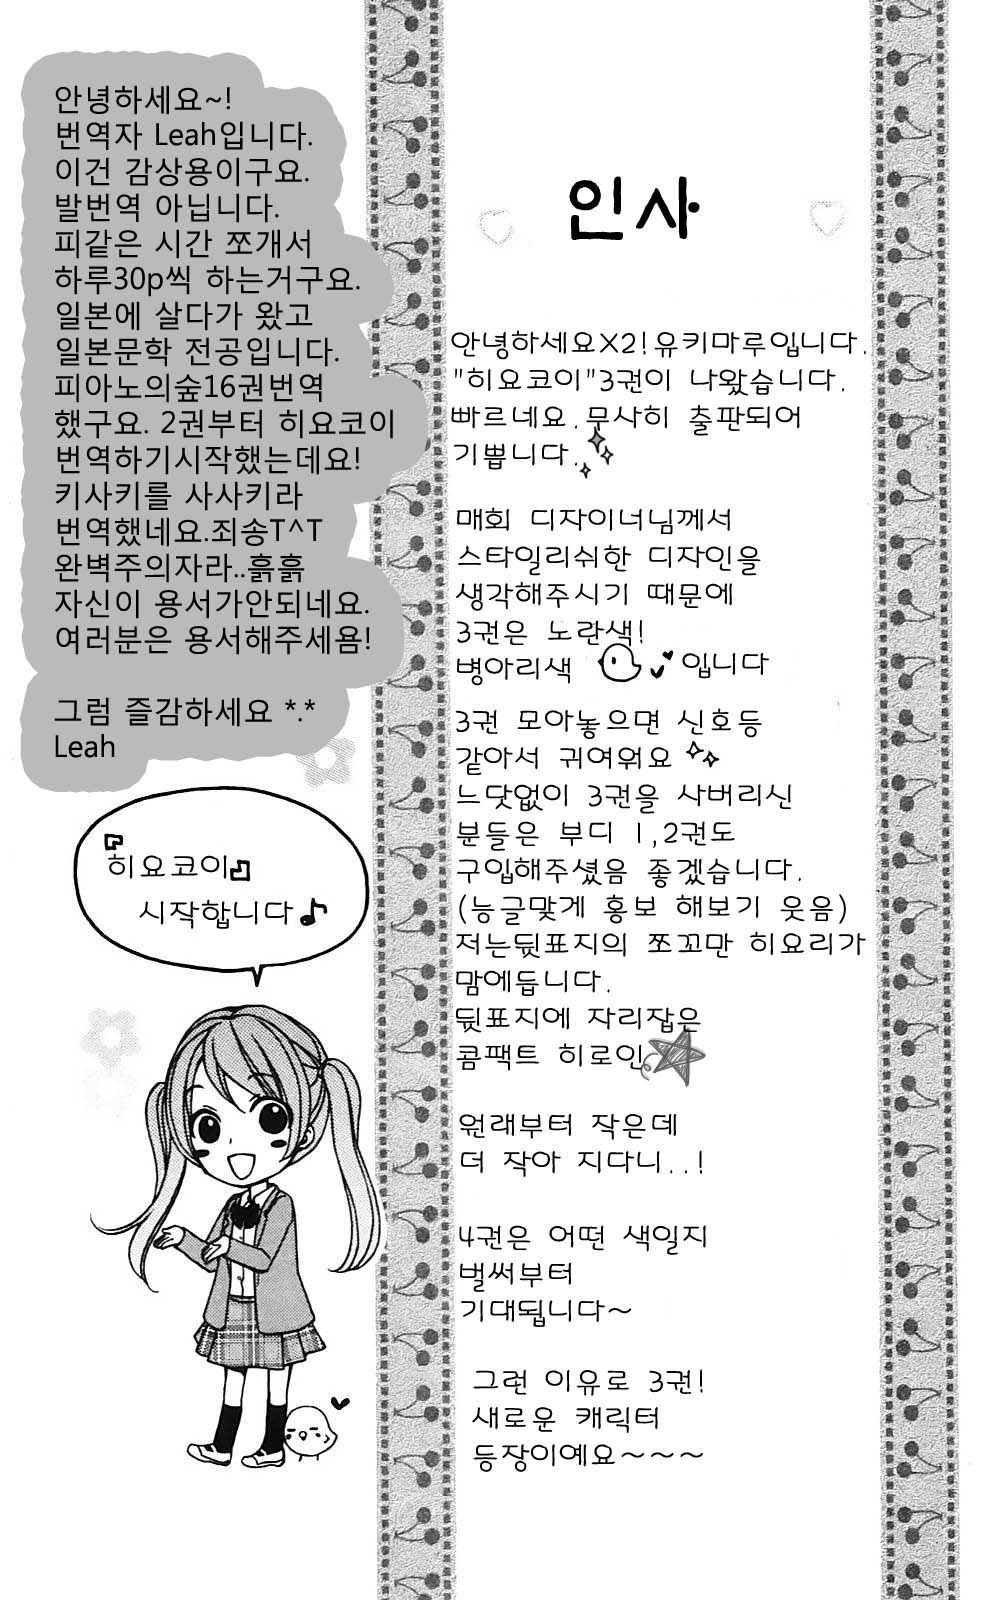 안녕하세요~!
번역자 Leah입니다.
이건 감상용이구요.
발번역 아닙니다.
피같은 시간 쪼개서
하루30p씩 하는거구요.
일본에 살다가 왔고
일본문학 전공입니다.
피아노의숲16권번역
했구요. 2권부터 히요코이
번역하기시작했는데요!
키사키를 사사키라
번역했네요.죄송T^T
완벽주의자라..흙흙
자신이 용서가안되네요.
여러분은 용서해주세욤!
그럼 즐감하세요 *.*
Leah
『히요코이』
시작합니다♪
인사
안녕하세요X2!유키마루입니다.
"히요코이"3권이 나왔습니다.
빠르네요.무사히 출판되어
기쁩니다.
매회 디자이너님께서
스타일리쉬한 디자인을
생각해주시기 때문에
3권은 노란색!
병아리색 입니다
3권 모아놓으면 신호등
같아서 귀여워요
느닷없이 3권을 사버리신
분들은 부디 1,2권도
구입해주셨음 좋겠습니다.
(능글맞게 홍보 해보기 웃음)
저는뒷표지의 쪼꼬만 히요리가
맘에듭니다.
뒷표지에 자리잡은
콤팩트 히로인
원래부터 작은데
더 작아 지다니..!
4권은 어떤 색일지
벌써부터
기대됩니다~
그런 이유로 3권!
새로운 캐릭터
등장이예요~~~